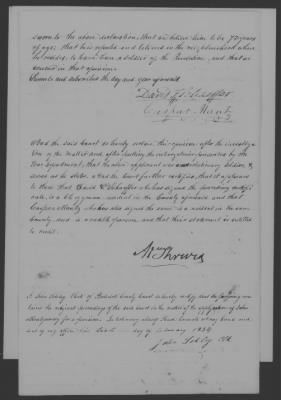 sworn to the above declaration, that we believe him to be 70 years
of age; that he is reputed and believed in the neighbourhood where
he resides, to have been a soldier of the Revolution, and that we
concur in that opinion.
Sworn to and subscribed the day and year aforesaid
David F. Schaeffer
Casper Mantz
And the said Court do hereby declare their opinion after the investiga-
tion of the matter, and after putting the interrogatories prescribed by the
War department, that the above applicant was a revolutionary soldier &
served as he states. And the Court further certifies, that it appears
to them that David F. Schaeffer who has signed the preceding certifi-
cate, is a clergyman resident in the County aforesaid and that
Casper Mantz who has also signed the same is a resident in the same
County and is a credible person and that their statement is entitled
to credit.
Wm Shriver
I John Schley Clerk of Frederick County Court do hereby certify that the foregoing con-
tains the original proceedings of the said Court in the matter of the application of John
Montgomery for a pension. In testimony whereof I have hereunto set my hand and
seal of my office this day of January 1834
John Schley Clk